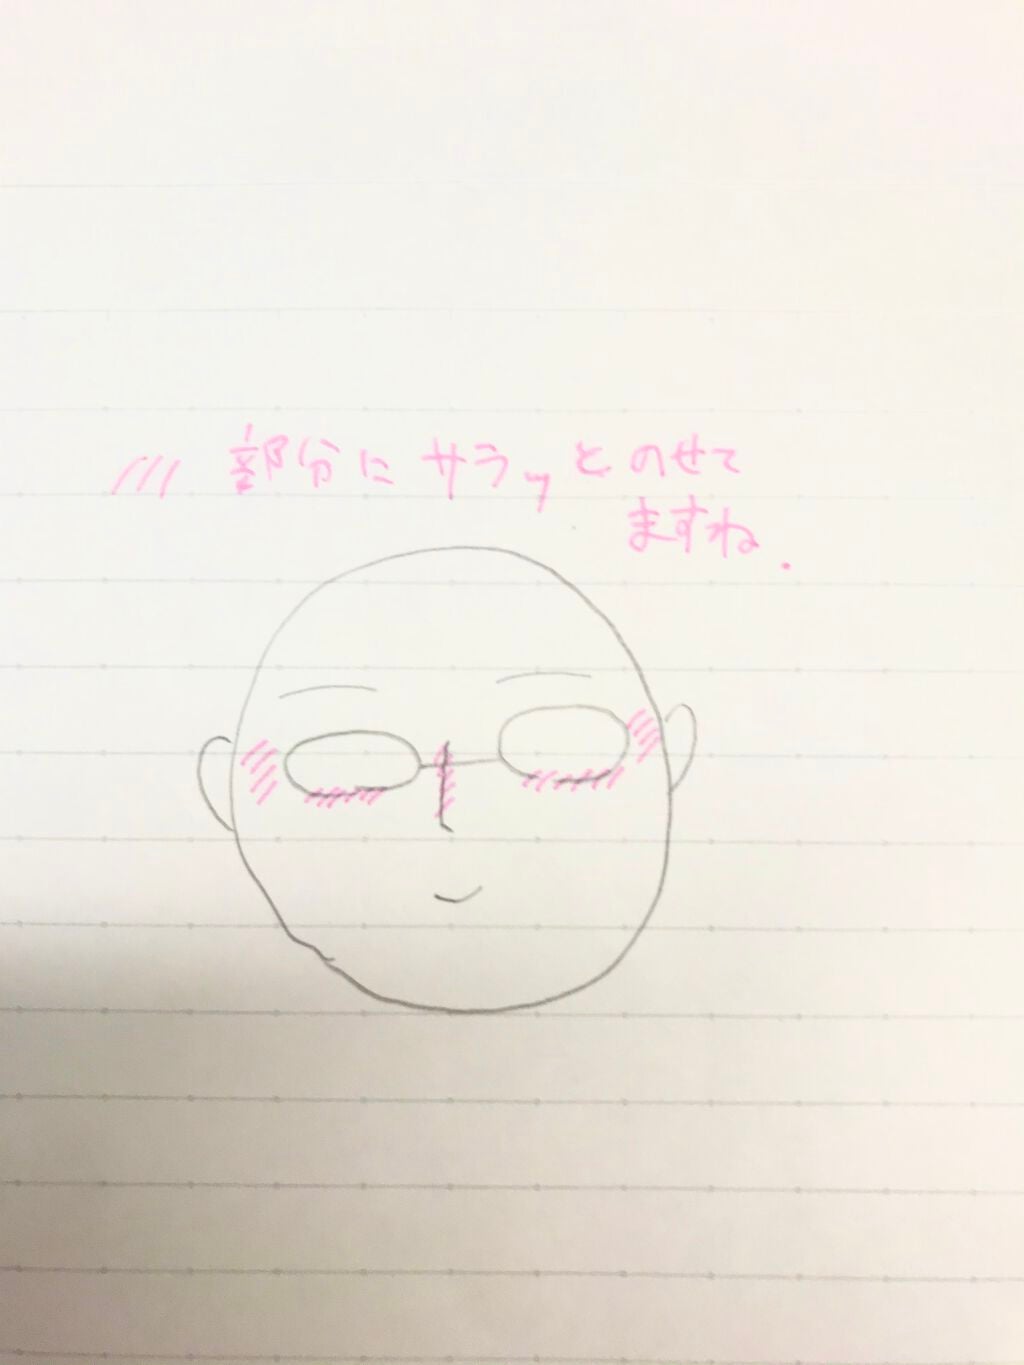 /// 部分に サラッと のせて
ますね.